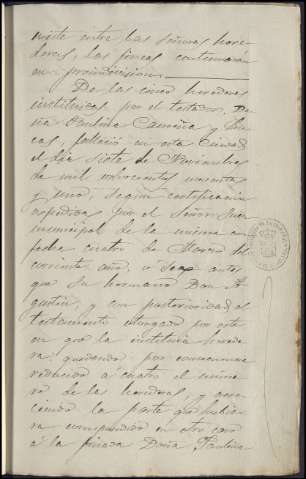 viste entre las señoras here-
deras, las fincas continuaran
en proindivision.
De las cinco herederas
instituidas por el testador, Do-
ña Paulina Carreña y Lu-
cas, falleció en esta Ciudad
el dia siete de Noviembre
de mil ochocientos noventa
y uno, segun certificacion
expedida por el Señor Juez
municipal de la misma con
fecha cuatro de Marzo del
corriente año, ó sea antes
que su hermano Don A-
gustin, y con posterioridad al
testamento otorgado por este
en que la instituia herede-
ra quedando por consecuencia
reducido á cuatro el núme-
ro de las herederas, y acre-
ciendo la parte que hubie-
ra correspondido en otro caso
á la finada Doña Paulina